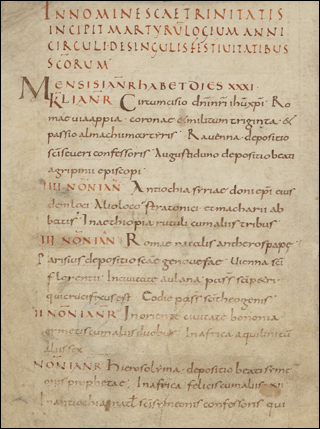 INNOMINESCAETRINITATIS
INCIPIT MARTYRULOGIUM ANNI
CIRCULI DESINGULIS FESTIVITATIBUS
SCŌRUM
MENSIS IANR HABET DIES XXXI·
KL IANR Circumcisio dnī nrī ihū xpī· Ro
mae uia appia· coronae &militum triginta· &
passio almachi martyris Rauenna· depositio
scī seueri confessoris Augustiduno depositio beati
agripini episcopi
IIII NON IAN· Antiochia siriae doni epī eius
dem loci Alioloco stratonici· et macharii ab
batis· In aethiopia rutuli cum aliis tribus
III NON IAN· Romae natalis antheros papae
Parisius depositio scae genouefae Uienna scī
florentii Inciuitate aulana pass scī petri
qui crucifixus est Codio pass scī theogenis
II NON IANR Inoriente ciuitate bononia
cum aliis duobus· In africa aquilini cum
aliis sex
NON IANR Hierosolyma· depositio beati syme
onis prophetae· In africa felicis cum aliis xii
In antiochia natl scī symeonis confessoris qui